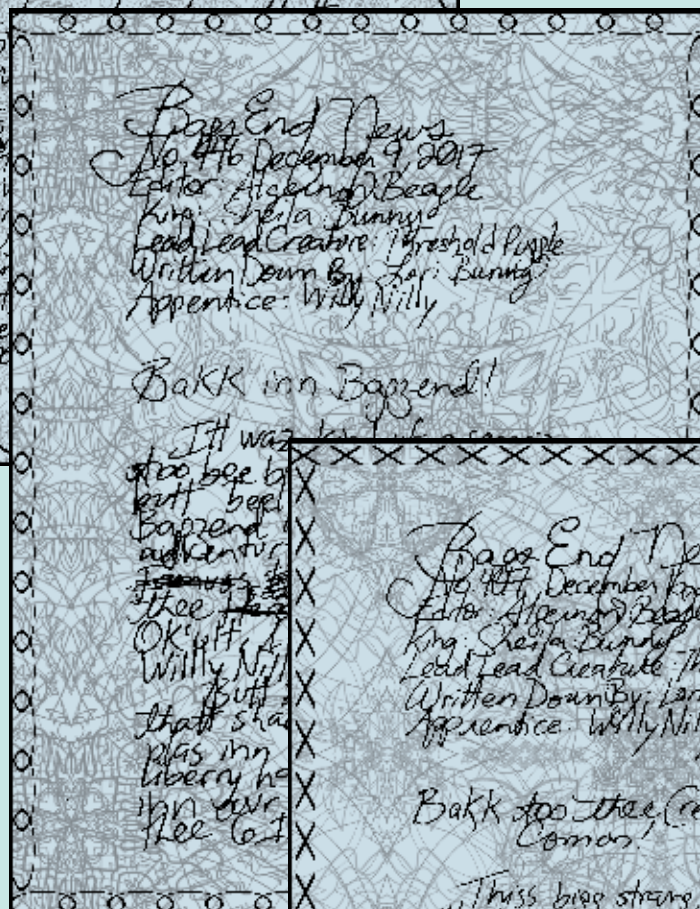 Bags End News
No. 446 December 9, 2017
Editor: Algernon D. Beagle
King: Sheila Bunny
Lead Lead Creature: Threshold Puggle
Written Down By: Lori Bunny
Apprentice: Willy Nilly
Bakk inn Bagzend!
Itt waz
too bee b
butt beef
Bagzend
adventur
thee
Ok! Itt
Willy Nill
Butt
thatt sha
plas inn
liberry
inn owr
thee 6
Bags End Ne
No. 447, December
Editor: Algernon D. Beag
King: Sheila Bunny
Lead Lead Creature:
Written Down By: Lor
Apprentice: Willy Nil
Bakk too thee
Comon!
Thiss bigg strang